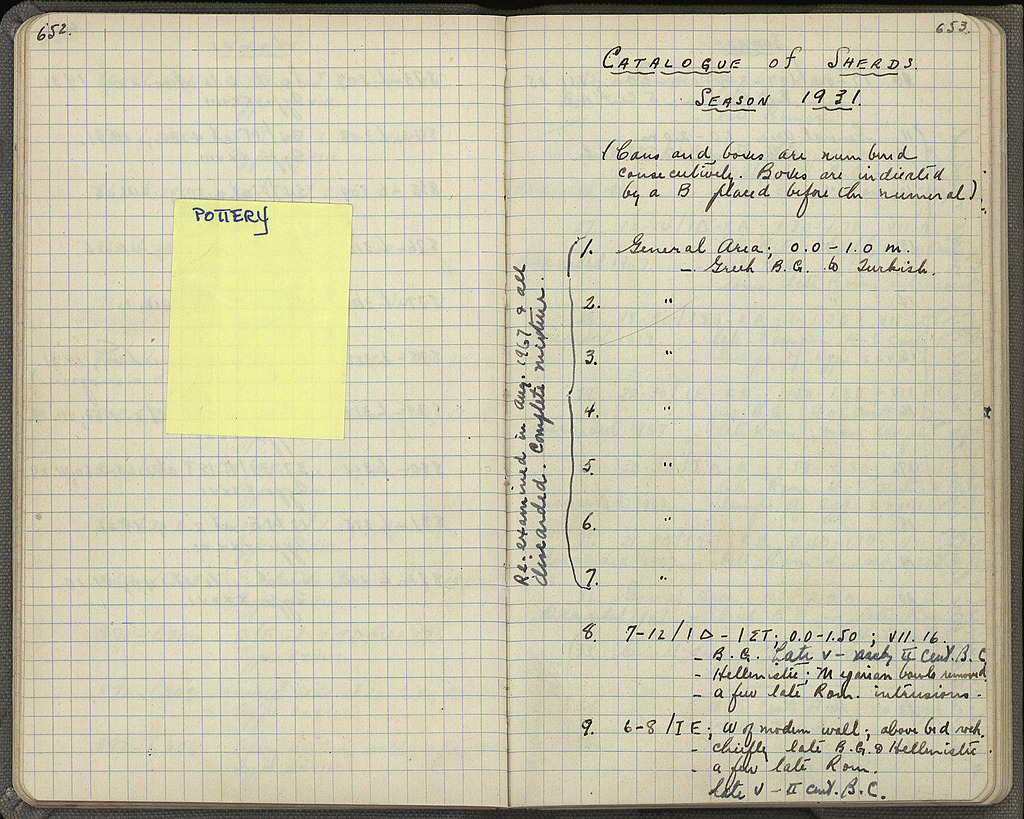 652.
POTTERY
653.
CATALOGUE of SHERDS.
SEASON 1931.
(Cans and boxes are numbered
consecutively. Boxes are indicated
by a B placed before the numeral).
Re-examined in Aug. 1967 & all
discarded. Complete mixture.
1. General Area; 0.0 - 1.0 m.
- Greek B.G. to Turkish.
2. "
3. "
4. "
5. "
6. "
7. "
8. 7-12/IΔ - IΣΤ; 0.0-1.50; VII. 16.
- B.G. Late V - early II cent. B.C.
- Hellenistic; Megarian bowls removed.
- a few late Rom. intrusions.
9. 6-8/IE; W of modern wall; above bed rock.
- chiefly late B.G. & Hellenistic.
- a few late Rom.
Late V - II cent. B.C.